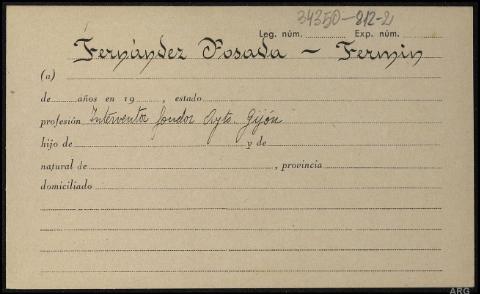 34350-812-2
Leg. núm. Exp. núm.
Fernández Posada - Fermin
(a)
de años en 19 , estado
profesión Interventor fondos Ayto. Gijón
hijo de y de
natural de , provincia
domiciliado
ARG